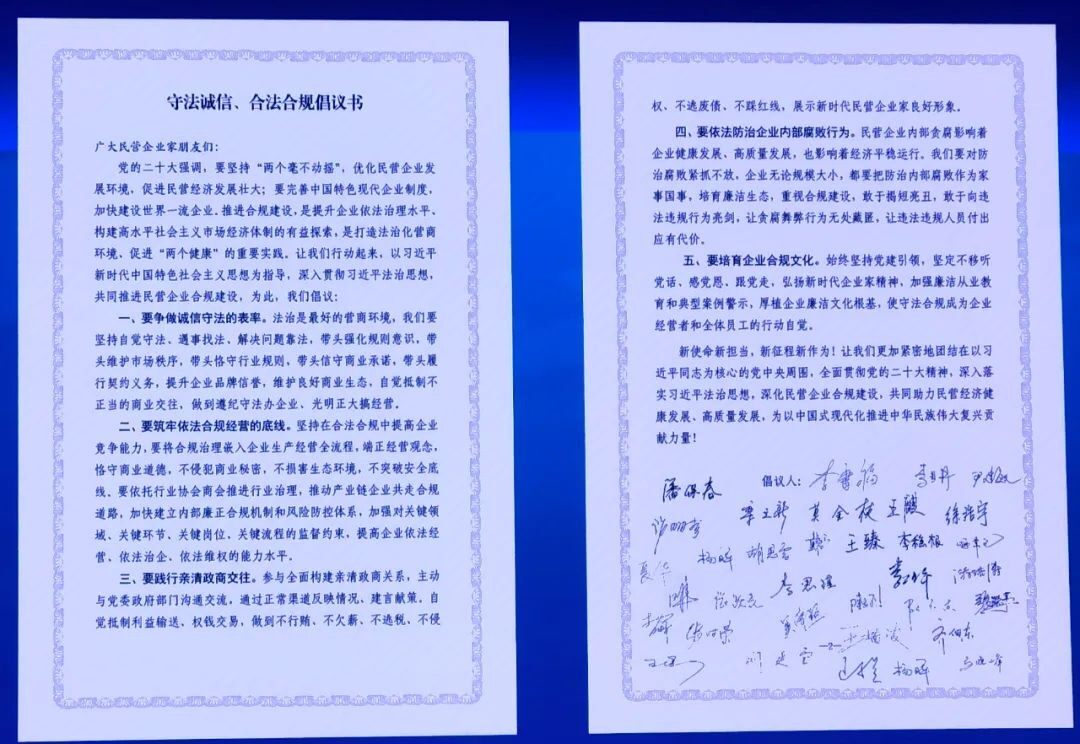 守法诚信、合法合规倡议书
广大民营企业家朋友们：
党的二十大强调，要坚持“两个毫不动摇”，优化民营企业发
展环境，促进民营经济发展壮大；要完善中国特色现代企业制度，
加快建设世界一流企业。推进合规建设，是提升企业依法治理水平、
构建高水平社会主义市场经济体制的有益探索，是打造法治化营商
环境、促进“两个健康”的重要实践。让我们行动起来，以习近平
新时代中国特色社会主义思想为指导，深入贯彻习近平法治思想，
共同推进民营企业合规建设，为此，我们倡议：
一、要争做诚信守法的表率。法治是最好的营商环境，我们要
坚持自觉守法、遇事找法、解决问题靠法，带头强化规则意识，带
头维护市场秩序，带头恪守行业规则，带头信守商业承诺，带头履
行契约义务，提升企业品牌信誉，维护良好商业生态，自觉抵制不
正当的商业交往，做到遵纪守法办企业、光明正大搞经营。
二、要筑牢依法合规经营的底线。坚持在合法合规中提高企业
竞争能力，要将合规治理嵌入企业生产经营全流程，端正经营观念，
恪守商业道德，不侵犯商业秘密，不损害生态环境，不突破安全底
线。要依托行业协会商会推进行业治理，推动产业链企业共走合规
道路，加快建立内部廉正合规机制和风险防控体系，加强对关键领
域、关键环节、关键岗位、关键流程的监督约束，提高企业依法经
营、依法治企、依法维权的能力水平。
三、要践行亲清政商交往。参与全面构建亲清政商关系，主动
与党委政府部门沟通交流，通过正常渠道反映情况、建言献策。自
觉抵制利益输送、权钱交易，做到不行贿、不欠薪、不逃税、不侵
权、不逃废债、不踩红线，展示新时代民营企业家良好形象。
四、要依法防治企业内部腐败行为。民营企业内部贪腐影响着
企业健康发展、高质量发展，也影响着经济平稳运行。我们要对防
治腐败紧抓不放，企业无论规模大小，都要把防治内部腐败作为家
事国事，培育廉洁生态，重视合规建设，敢于揭短亮丑，敢于向违
法违规行为亮剑，让贪腐舞弊行为无处藏匿，让违法违规人员付出
应有代价。
五、要培育企业合规文化。始终坚持党建引领，坚定不移听
党话、感党恩、跟党走，弘扬新时代企业家精神，加强廉洁从业教
育和典型案例警示，厚植企业廉洁文化根基，使守法合规成为企业
经营者和全体员工的行动自觉。
新使命新担当，新征程新作为！让我们更加紧密地团结在以习
近平同志为核心的党中央周围，全面贯彻党的二十大精神，深入落
实习近平法治思想，深化民营企业合规建设，共同助力民营经济健
康发展、高质量发展，为以中国式现代化推进中华民族伟大复兴贡
献力量！
倡议人：
潘保春
王臻
杨晖
-2-
杨晖